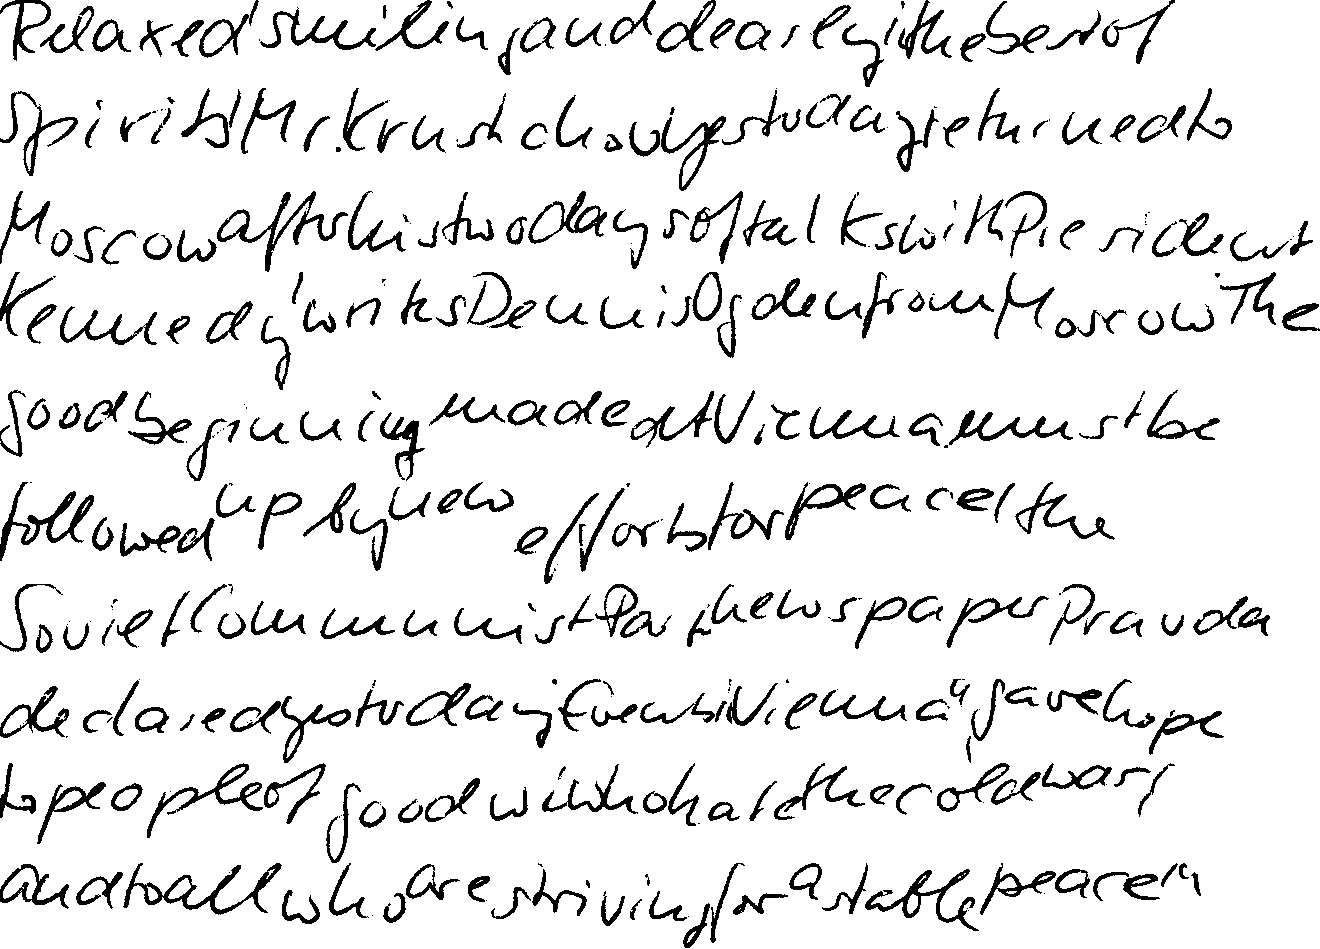 Relaxed, smiling and clearly in the best of
spirits, Mr. Krustchov yesterday returned to
Moscow after his two days of talks with President
Kennedy, writes Dennis Ogden from Moscow. The
good beginning made at Vienna must be
followed up by new efforts for peace, the
Soviet Communist Party newspaper Pravda
declared yesterday. Events in Vienna "gave hope
to people of good will who hate the cold war,
and to all who are striving for a stable peace."